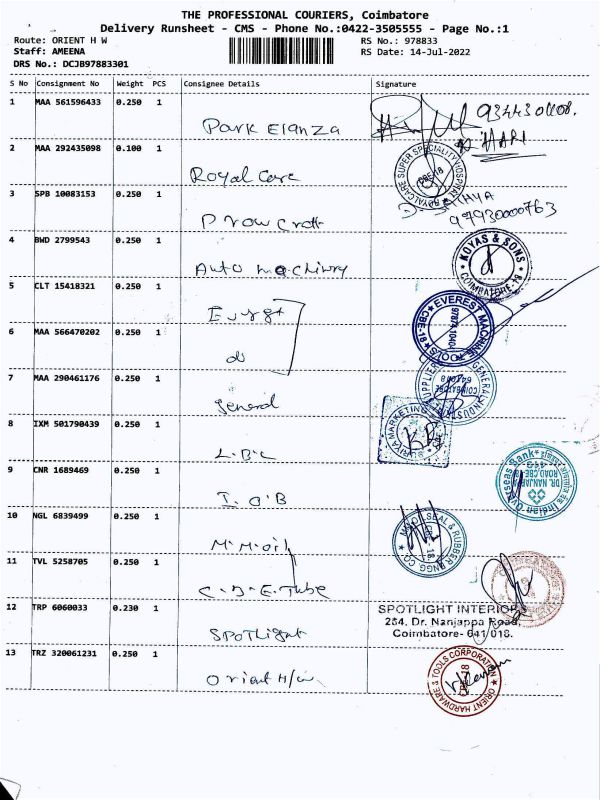 THE PROFESSIONAL COURIERS, Coimbatore
Delivery Runsheet - CMS - Phone No.:0422-3505555 - Page No.:1
Route: ORIENT H W
Staff: AMEENA
DRS No.: DCJB97883301
RS No.: 978833
RS Date: 14-Jul-2022
S No Consignment No Weight PCS Consignee Details Signature
1 MAA 561596433 0.250 1
Park Elanza
HARI
2 MAA 292435098 0.100 1
Royal Care
ROYALCARE SUPER SPECIALITY HOSPITAL
CBE-18
3 SPB 10083153 0.250 1
97930000763
4 BWD 2799543 0.250 1
Auto machinry
KOYAS & SONS
COIMBATORE-18
5 CLT 15418321 0.250 1
EVEREST MACHINE TOOLS
CBE-18
6 MAA 566470202 0.250 1
do
7 MAA 290461176 0.250 1
general
GENERAL INDUS SUPPLIER
COIMBATORE
8 IXM 501790439 0.250 1
L.B.C
SURIYA MARKETING
9 CNR 1689469 0.250 1
I.O.B
Indian Overseas Bank
DR. NANJAPPA
ROAD, CBE
10 NGL 6839499 0.250 1
M.M.oil
OIL SEAL & RUBBER ENGG CO.
CBE 18
11 TVL 5258705 0.250 1
C.B.E.Tube
12 TRP 6060033 0.230 1
SPOTlight
SPOTLIGHT INTERIORS
264, Dr. Nanjappa Road,
Coimbatore- 641 018.
13 TRZ 320061231 0.250 1
Orient H/w
ORIENT HARDWARE & TOOLS CORPORATION
CBE-18